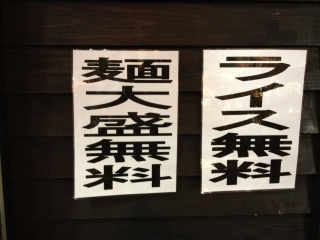 麺大盛無料
ライス無料